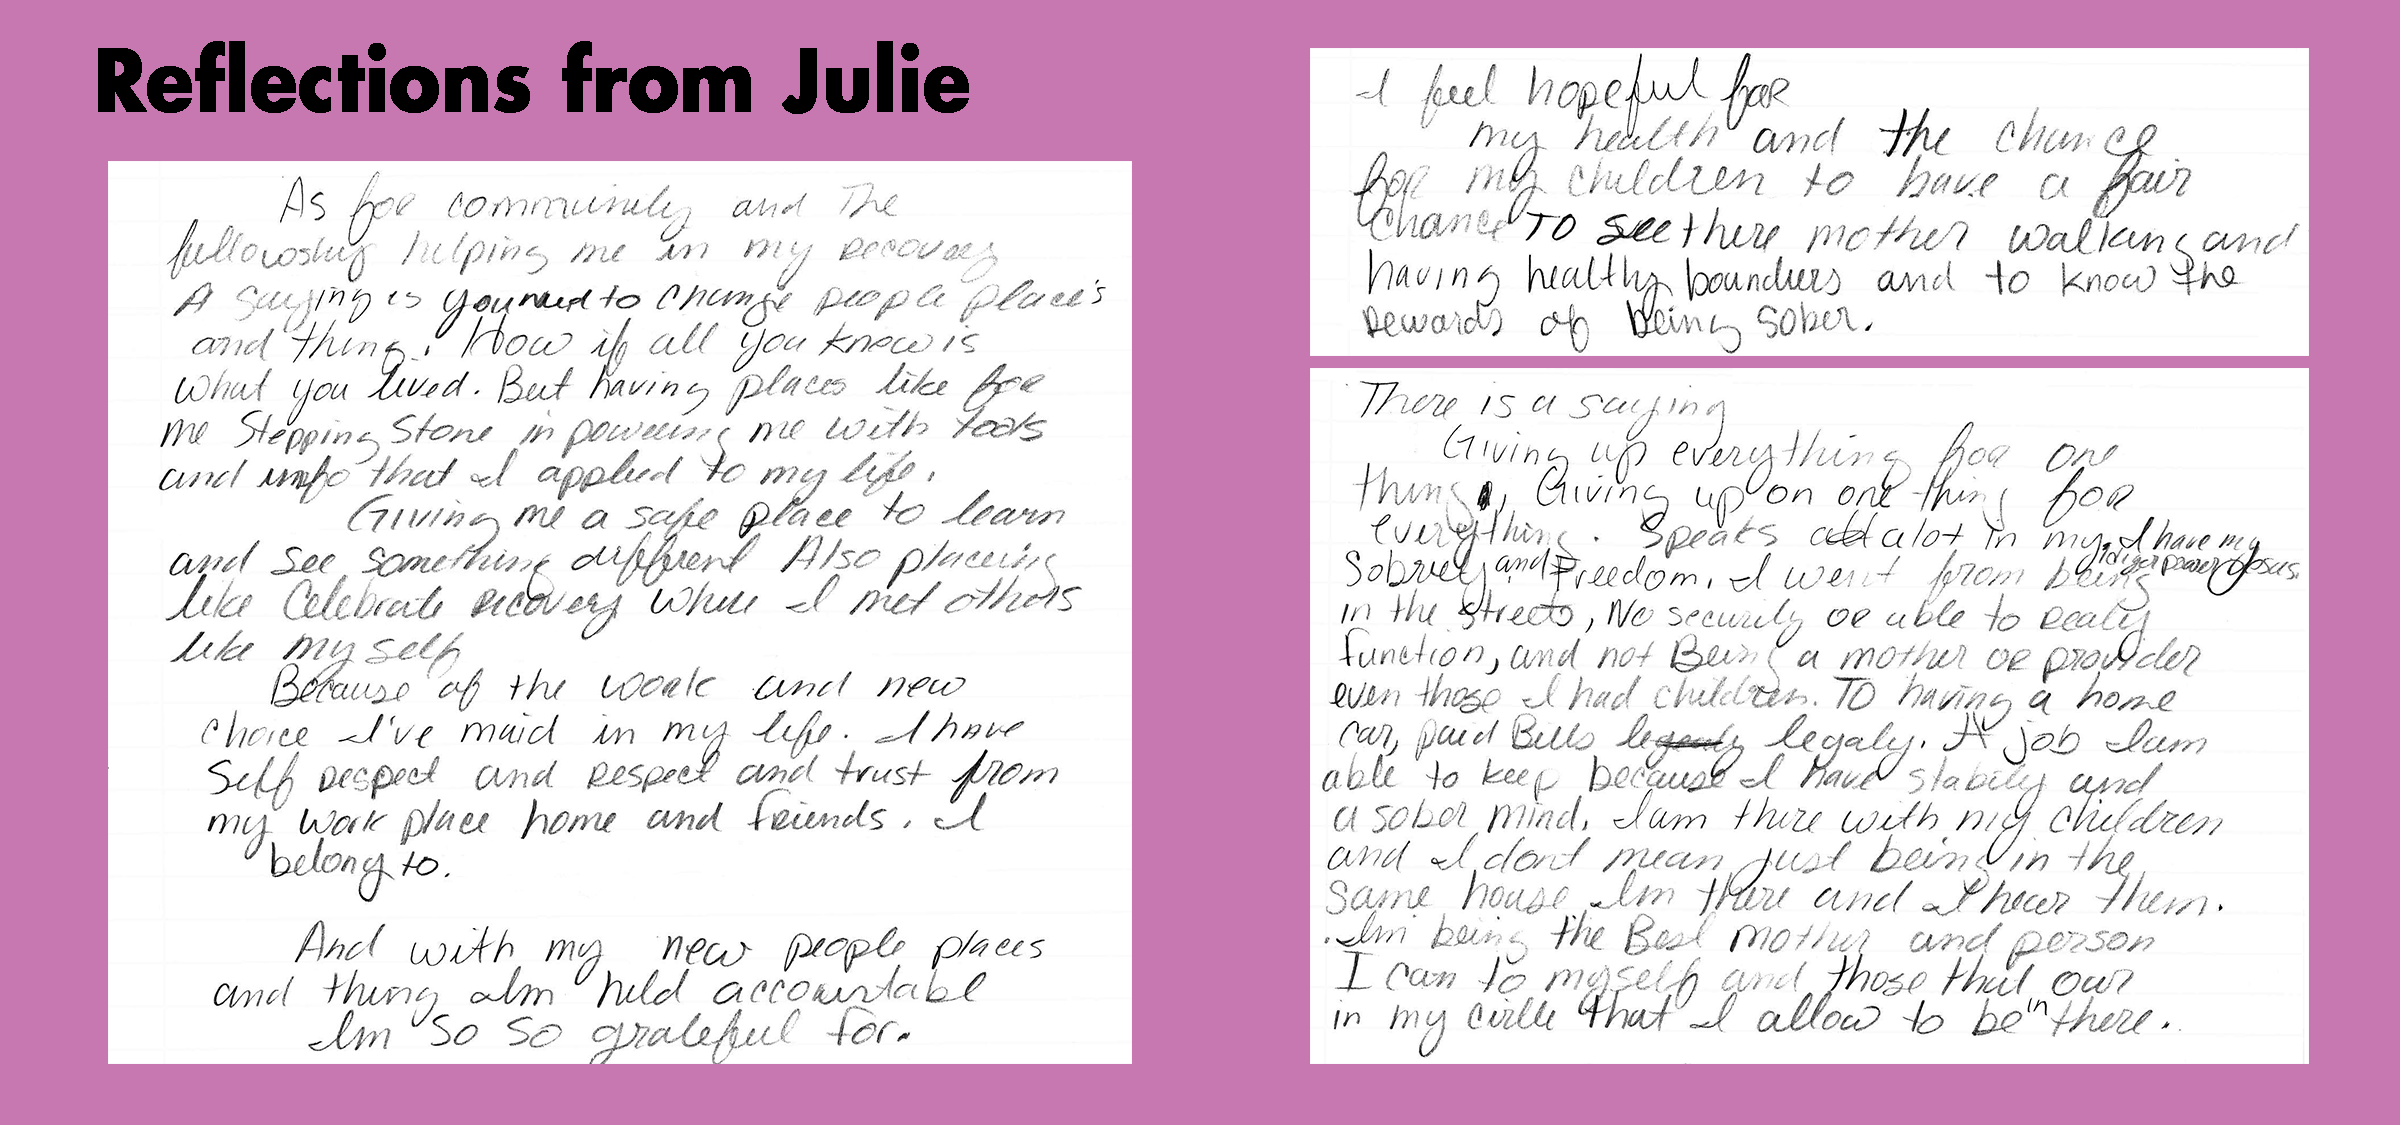 Reflections from Julie
As for community and The
fellowship helping me in my recovery
A saying is you need to change people place's
and thing. How if all you know is
what you lived. But having places like for
me Stepping Stone in powering me with tools
and info that I applied to my life.
Giving me a safe place to learn
and see something different Also placeing
like Celebrate recovery where I met others
like my self
Because of the work and new
choice I've maid in my life. I have
Self respect and respect and trust from
my work place home and friends. I
belong to.
And with my new people places
and thing Im held accountabl
Im so so grateful for.
I feel hopeful for
my health and the chance
for my children to have a fair
chance To see there mother walking and
having healthy bounders and to know the
rewards of being sober.
There is a saying
Giving up everything for one
thing, Giving up on one thing for
everything. Speaks alot in my, I have my
higer power Jesus.
Sobriey and Freedom. I went from being
in the streets, No security or able to realy
function, and not Being a mother or provider
even those I had children. To having a home
car, paid Bills legaly. A job Iam
able to keep because I have stabily and
a sober mind. Iam there with my children
and I dont mean just being in the
same house Im there and I hear them.
.Im being the Best mother and person
I can to myself and those that our
in my cirlle that I allow to be in there.